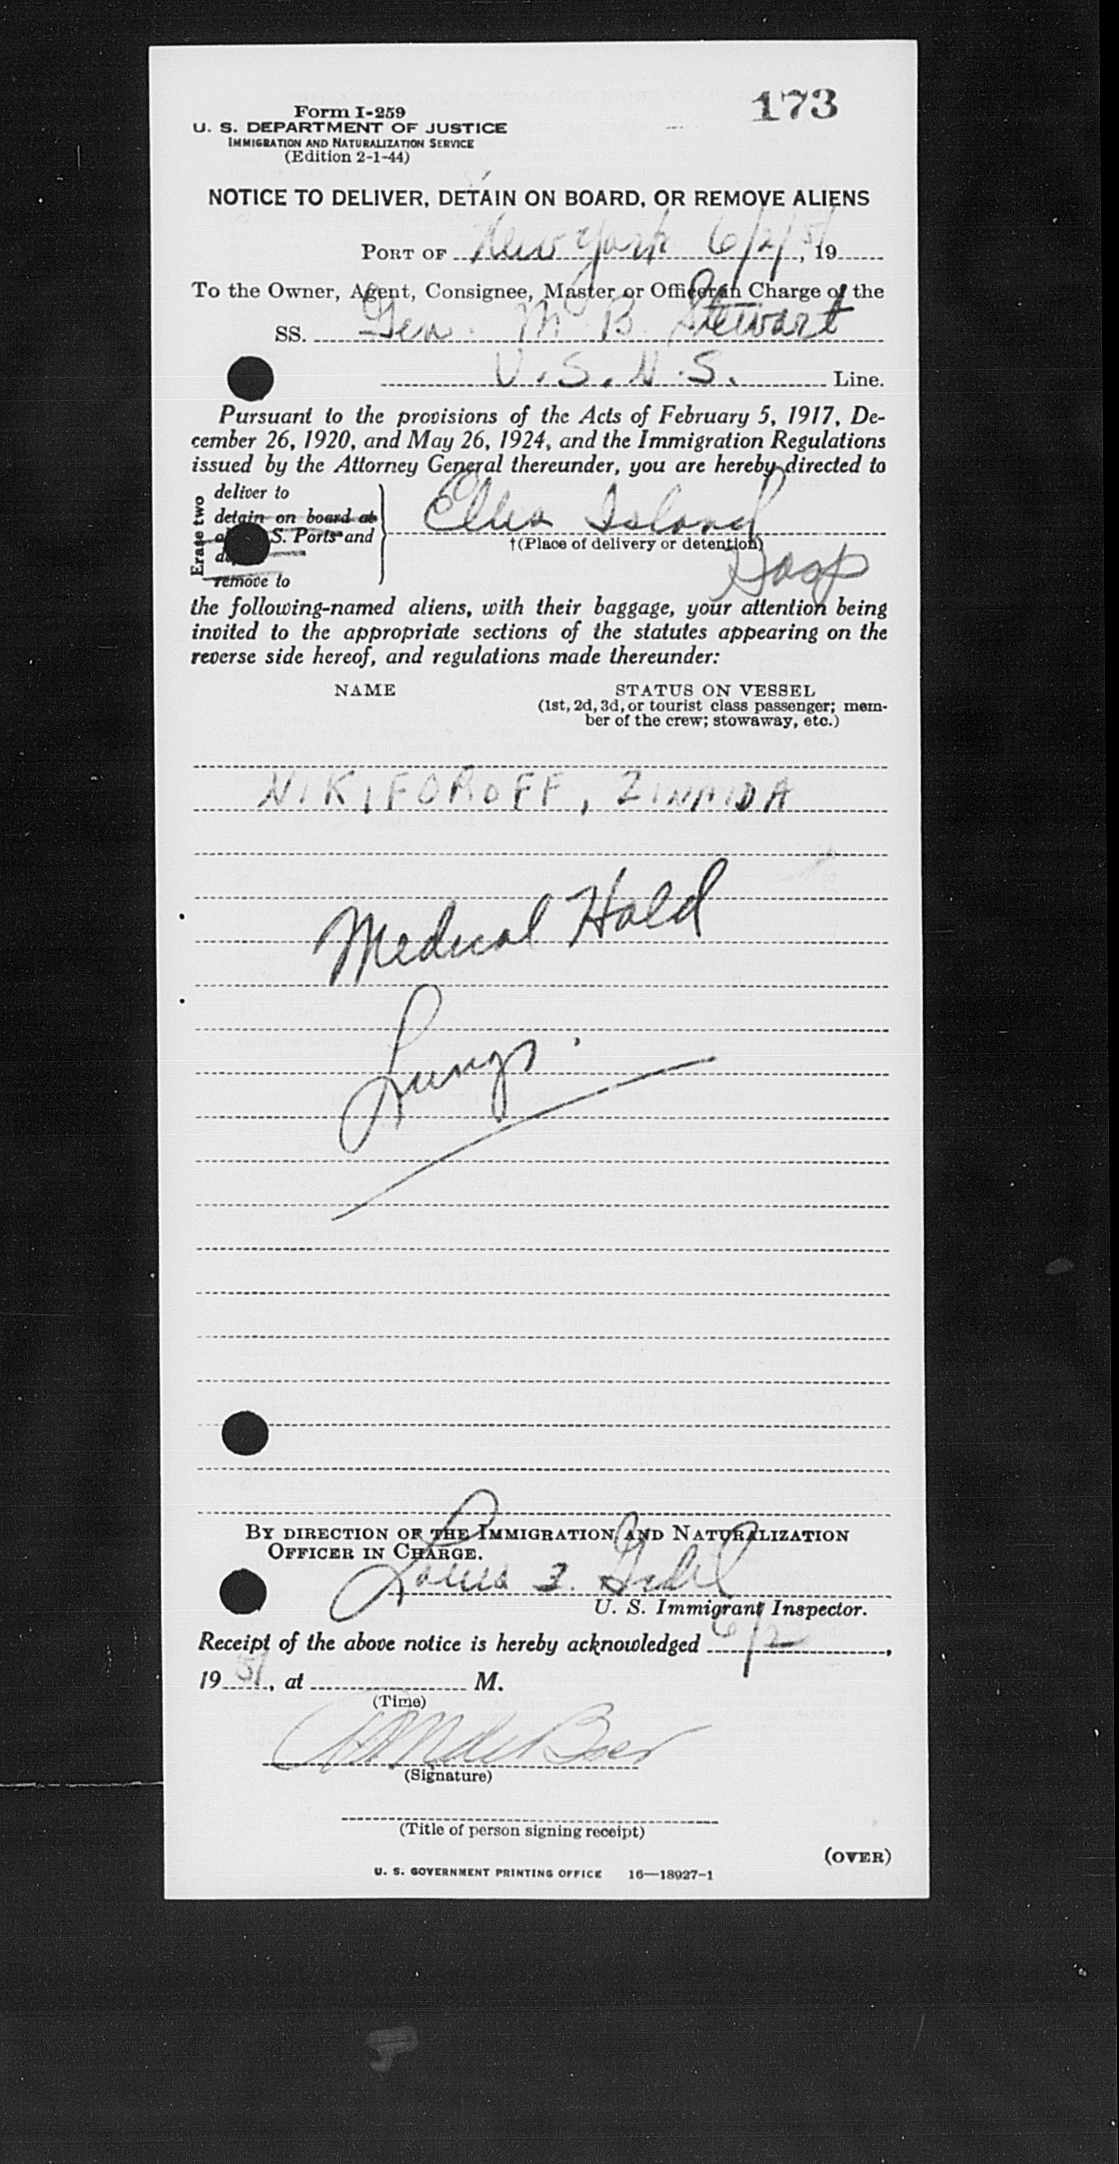 173
Form I-259
U. S. DEPARTMENT OF JUSTICE
IMMIGRATION AND NATURALIZATION SERVICE
(Edition 2-1-44)
NOTICE TO DELIVER, DETAIN ON BOARD, OR REMOVE ALIENS
PORT OF New York 6/2/51, 19
To the Owner, Agent, Consignee, Master or Officer in Charge of the
SS. Gen. M. B. Stewart
U.S.N.S. Line.
Pursuant to the provisions of the Acts of February 5, 1917, De-
cember 26, 1920, and May 26, 1924, and the Immigration Regulations
issued by the Attorney General thereunder, you are hereby directed to
Erase two
deliver to
detain on board at
S. Ports and
remove to
Ellis Island
†(Place of delivery or detention)
Hosp
the following-named aliens, with their baggage, your attention being
invited to the appropriate sections of the statutes appearing on the
reverse side hereof, and regulations made thereunder:
NAME STATUS ON VESSEL
(1st, 2d, 3d, or tourist class passenger; mem-
ber of the crew; stowaway, etc.)
NIKIFOROFF, ZINAIDA
Medical Hold
Lungs.
BY DIRECTION OF THE IMMIGRATION AND NATURALIZATION
OFFICER IN CHARGE.
Louis
U. S. Immigrant Inspector.
Receipt of the above notice is hereby acknowledged 6/2,
1951, at M.
(Time)
(Signature)
(Title of person signing receipt)
(OVER)
U. S. GOVERNMENT PRINTING OFFICE 16—18927-1